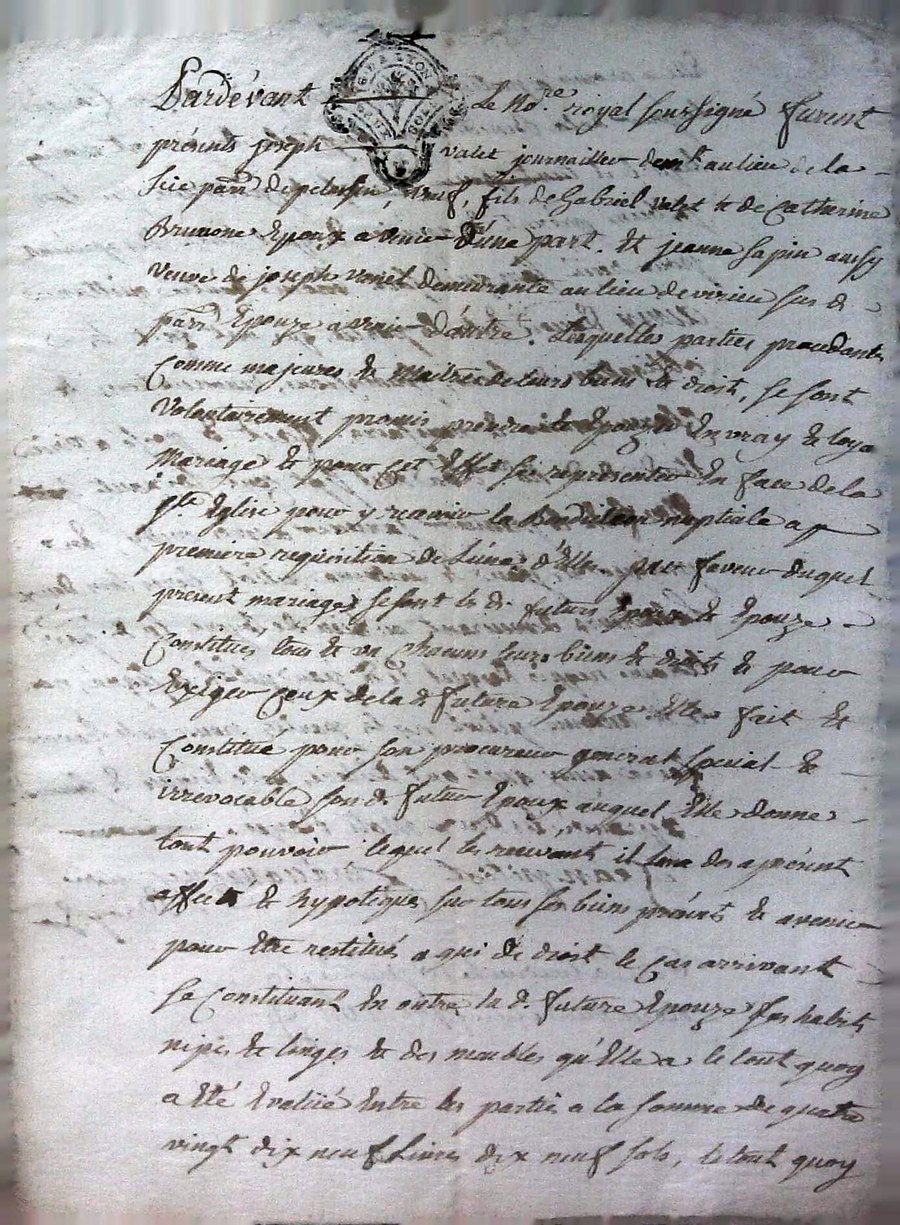 Pardevant Le No.re royal soussigné furent
présents joseph valet journailler dem.t au lieu de la
Scie parr. de pelussin, veuf, fils de Gabriel valet & de Catherine
Brunone Epoux a venir d'une part. Et jeanne sapin aussy
veuve de joseph demeurante au lieu de virieu sus d.
parr. Epouze a venir d'autre. Lesquelles parties procedantes
Comme majeures & maitres de leurs biens & droits, se sont
Volontairement promis prendre & Epouzer En vray & loyal
Mariage & pour cet Effet se représenter En face de la
s.te Eglise pour y recevoir la Bénédiction nuptiale a la
premiere requisition de L'une d'Elles. par faveur duquel
present mariage, se sont les d. futurs Epoux & Epouze
Constitués tous & un chacuns leurs biens & droits & pour
Exiger Ceux de la d. future Epouze Elle a fait &
Constitué pour son procureur general special &
irrevocable son d. futur Epoux auquel Elle donne
tout pouvoir lequel les recevant il Les a des a present
affecté & hypotequés sur tous ses biens présents & avenir
pour Etre restitués a qui de droit le cas arrivant
Se Constituant En outre la d. future Epouze ses habits
nipes & linges & des meubles qu'Elle a le tout quoy
a Eté Evalüé Entre les parties a la somme de quatre
vingt dix neuf Livres dix neuf sols, le tout quoy